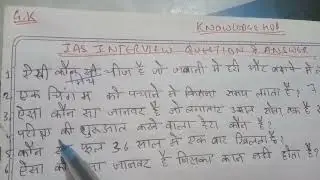 G.K
KNOWLEDGE HUB
IAS INTERVIEW QUESTION & ANSWER
1 ऐसी कौन सी चीज है जो जवानी में हरी और बुढ़ापे में
2 एक चिंगम को पचाने में कितना समय लगता है ?
3 ऐसा कौन सा जानवर है जो लगातार तक है
4 परीक्षा की शुरुआत करने वाला देश कौन है ?
5 कौन फूल 36 साल में एक बार खिलता है ?
6 ऐसा सा जानवर है जिसका कान नहीं होता है ?